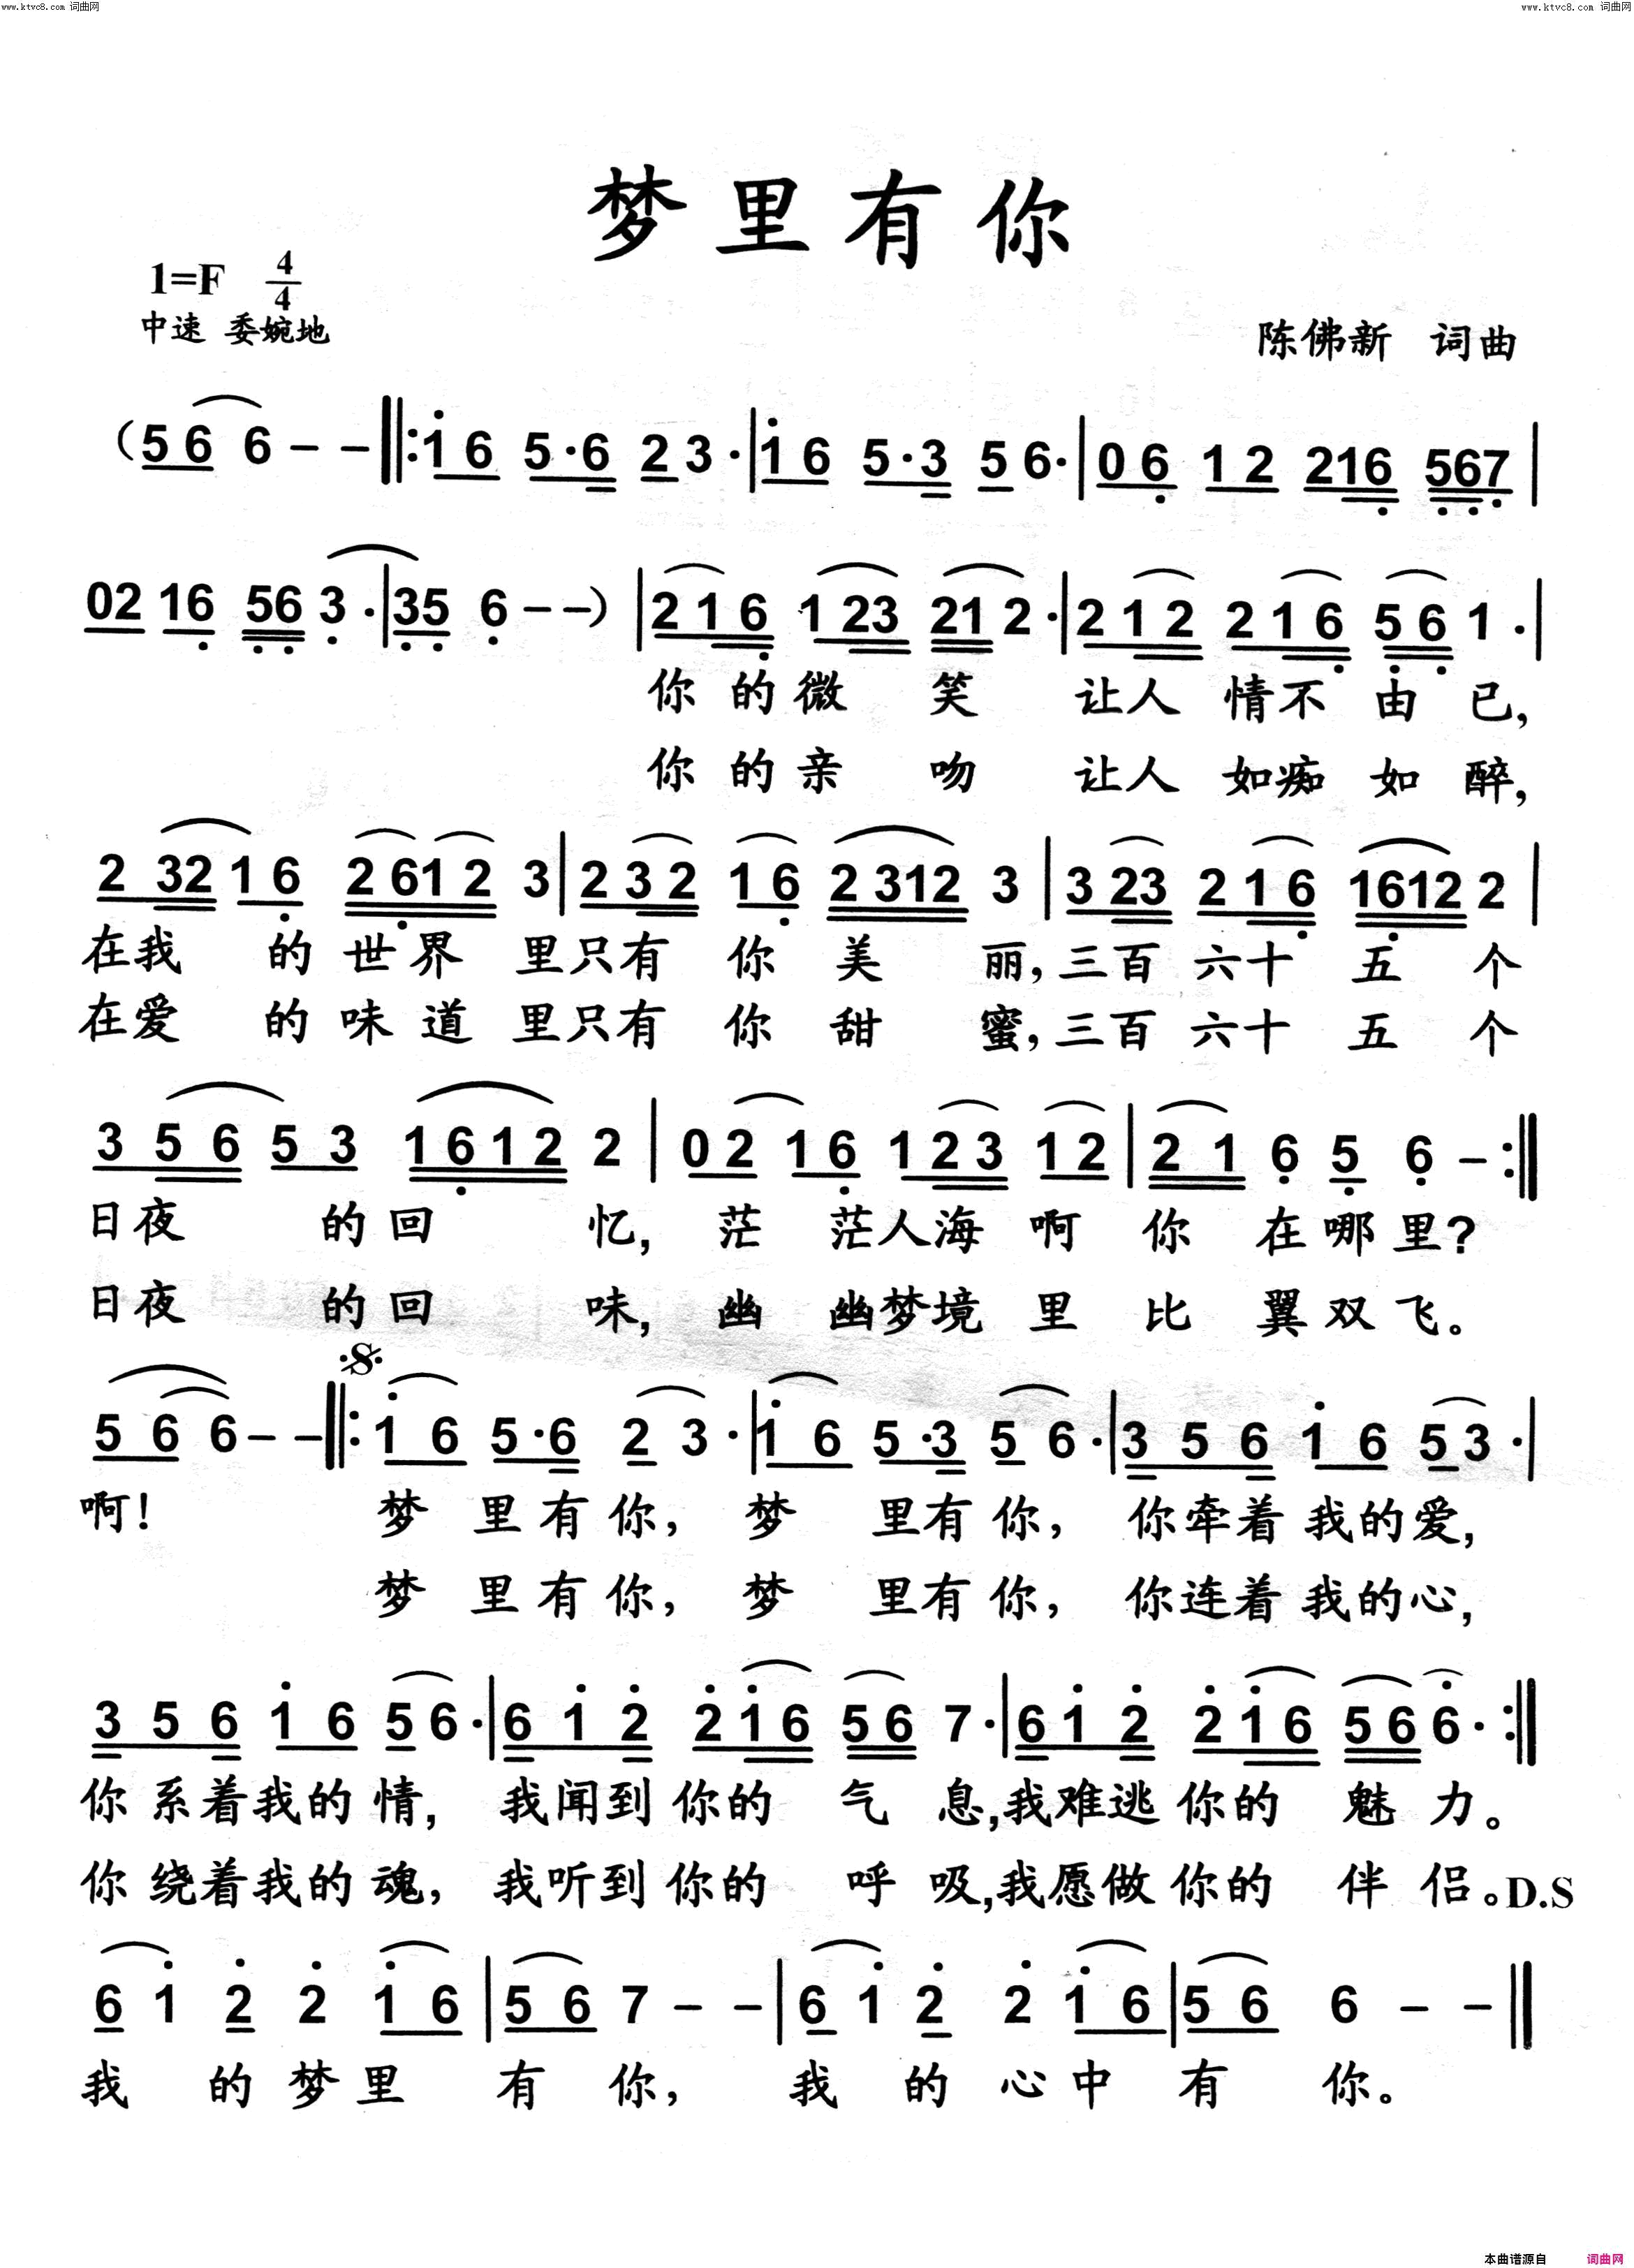 www.ktvc8.com 词曲网
www.ktvc8.com 词曲网
梦里有你
1=F 4/4
中速 委婉地
陈佛新 词曲
(5 6 6 - - ‖: 1 6 5·6 2 3· | 1 6 5·3 5 6· | 0 6 1 2 216 567 |
02 16 56 3· | 35 6 - - ) | 2 1 6 1 23 21 2· | 2 1 2 2 1 6 5 6 1· |
你的微笑 让人情不由已,
你的亲吻 让人如痴如醉,
2 32 1 6 2 61 2 3 | 2 3 2 1 6 2 312 3 | 3 23 2 1 6 1612 2 |
在我的世界里只有你美丽,三百六十五个
在爱的味道里只有你甜蜜,三百六十五个
3 5 6 5 3 1 6 1 2 2 | 0 2 1 6 1 2 3 1 2 | 2 1 6 5 6 - :‖
日夜的回忆,茫茫人海啊你在哪里?
日夜的回味,幽幽梦境里比翼双飞。
5 6 6 - - ‖: 1 6 5·6 2 3· | 1 6 5·3 5 6· | 3 5 6 1 6 5 3· |
啊! 梦里有你,梦里有你,你牵着我的爱,
梦里有你,梦里有你,你连着我的心,
3 5 6 1 6 5 6· | 6 1 2 2 1 6 5 6 7· | 6 1 2 2 1 6 5 6 6· :‖
你系着我的情,我闻到你的气息,我难逃你的魅力。
你绕着我的魂,我听到你的呼吸,我愿做你的伴侣。D.S
6 1 2 2 1 6 | 5 6 7 - - | 6 1 2 2 1 6 | 5 6 6 - - ‖
我的梦里有你,我的心中有你。
本曲谱源自 词曲网